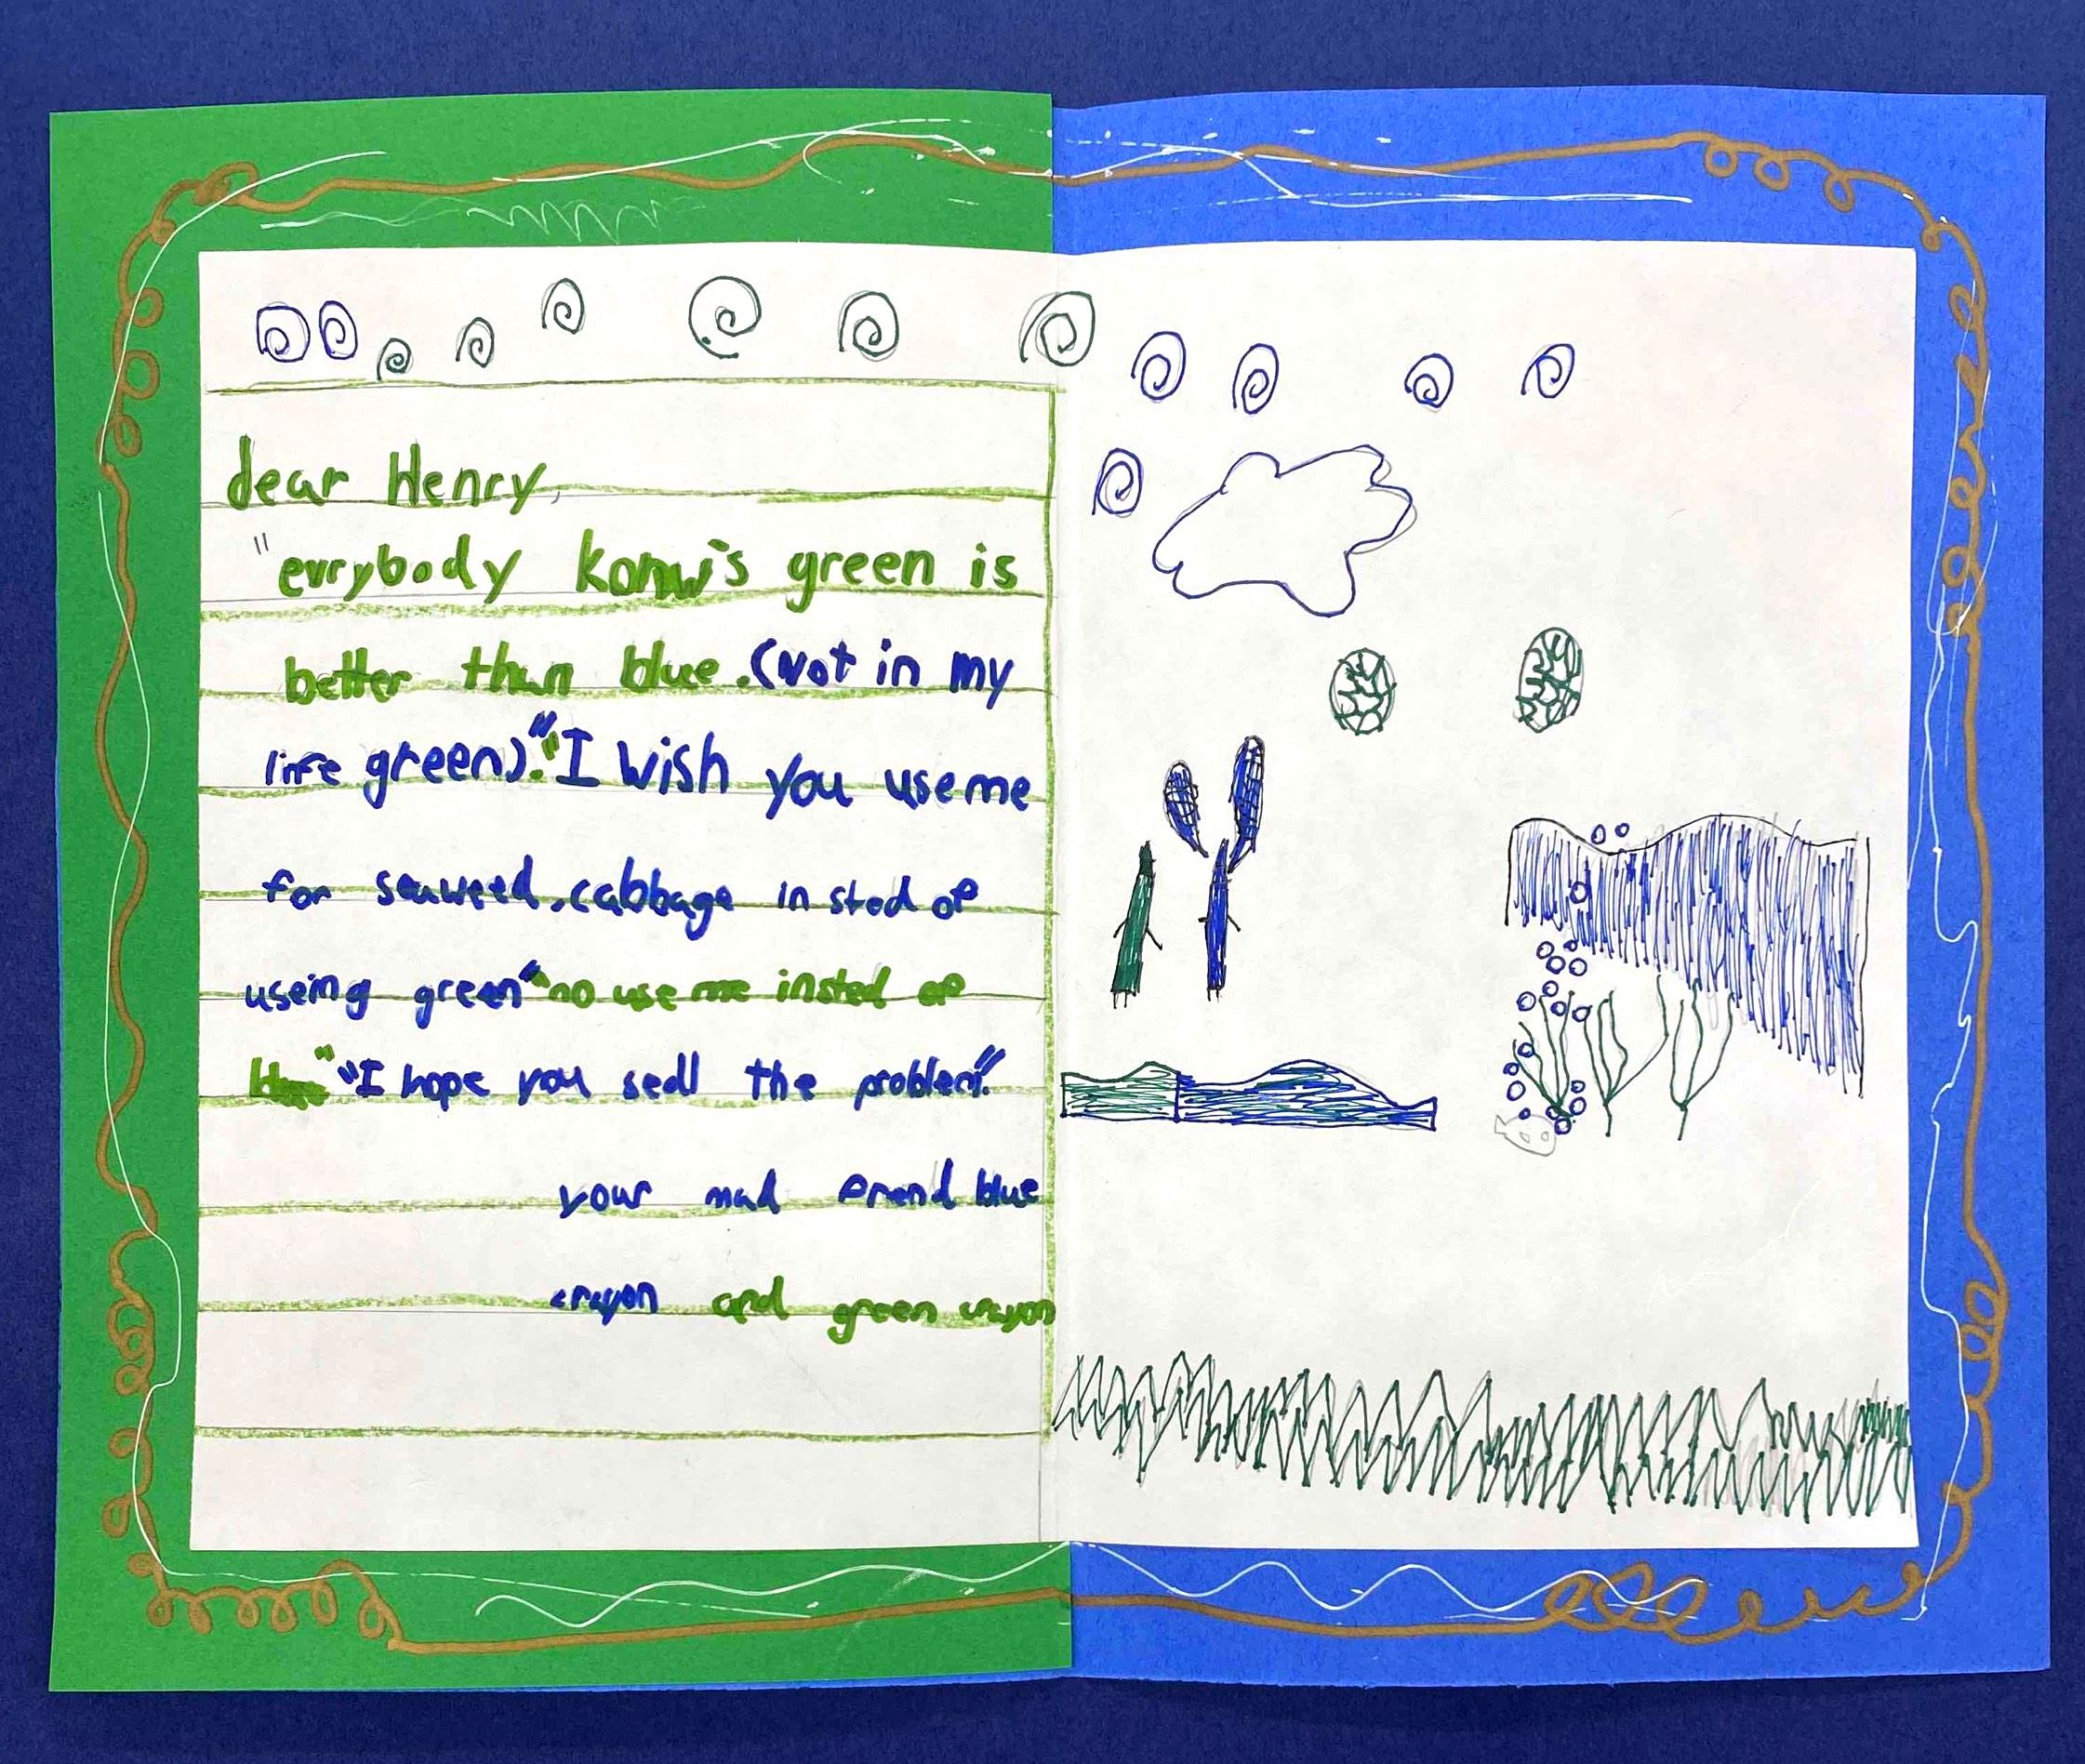 dear Henry,
"evrybody konw's green is
better than blue.(Not in my
life green)." "I wish you use me
for seaweed.cabbage in stod of
useing green" "no use me insted of
blue" "I hope you sedl the problem."
your mad frend blue
crayon and green crayon